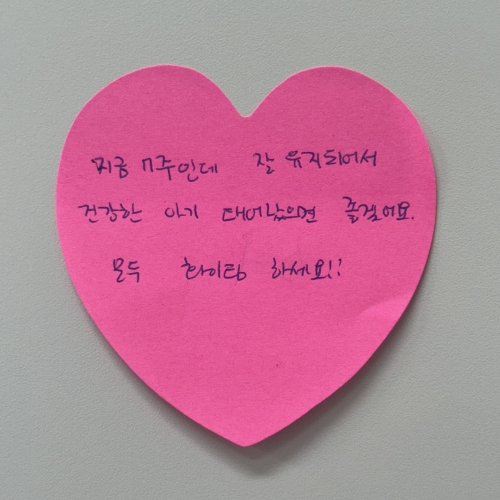 지금 7주인데 잘 유지되어서
건강한 아기 태어났으면 좋겠어요.
모두 화이팅 하세요!!